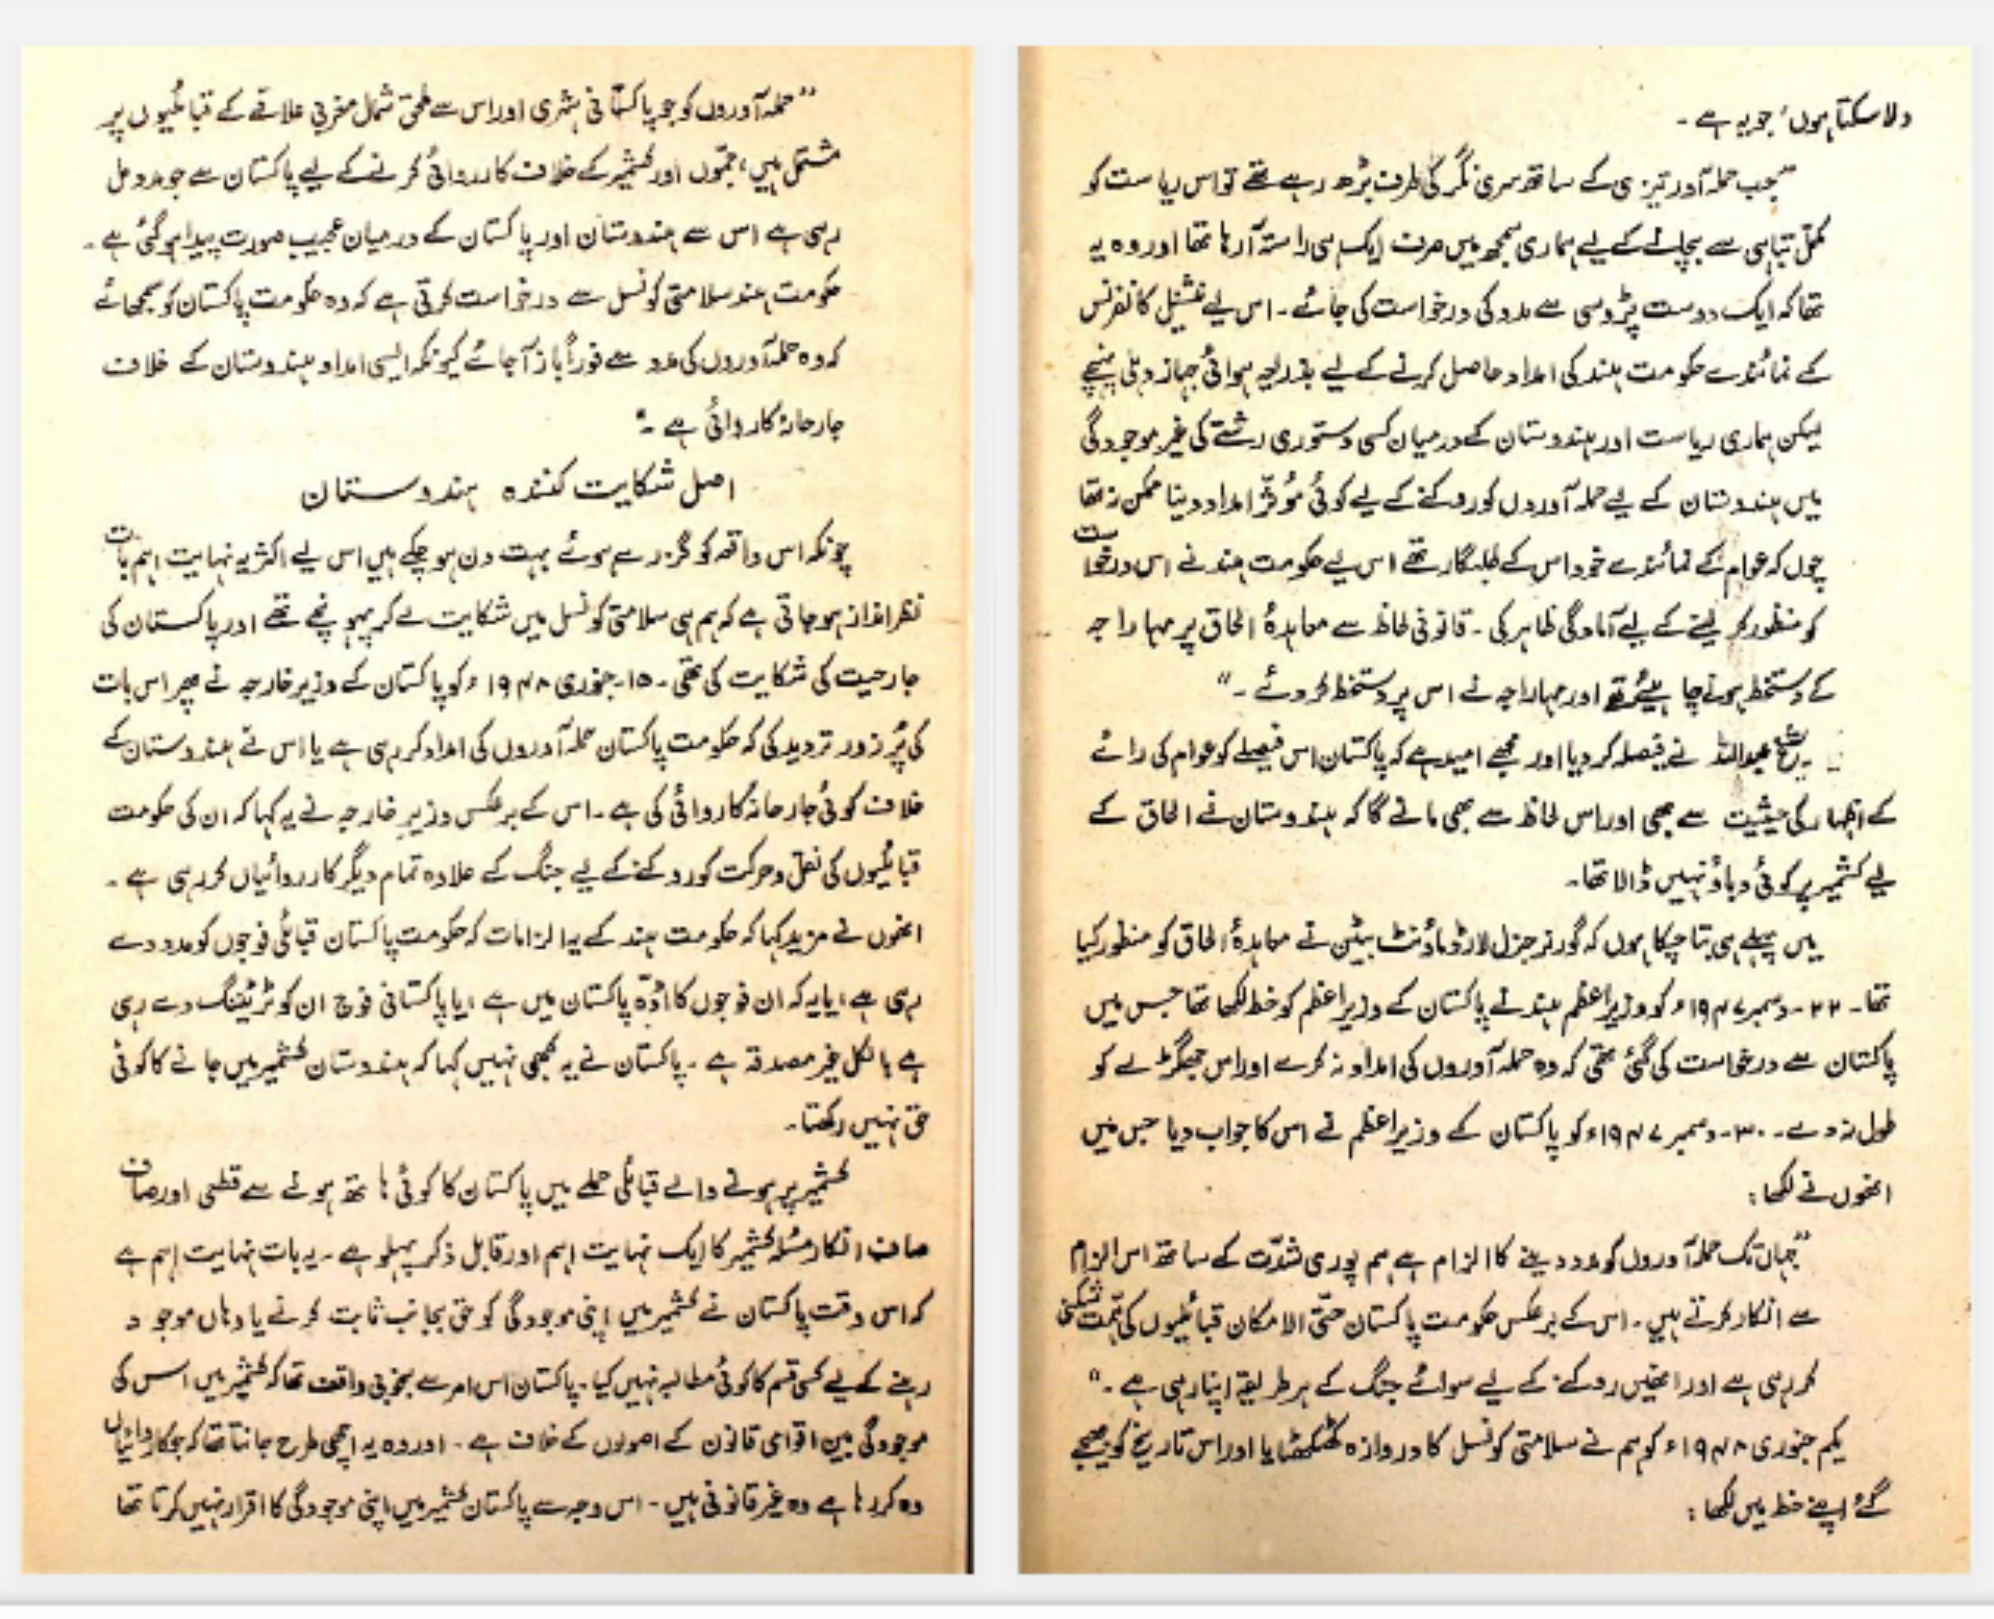 دلا سکتا ہوں، جو یہ ہے۔
"جب حملہ آور تیزی کے ساتھ سری نگر کی طرف بڑھ رہے تھے تو اس ریاست کو
مکمل تباہی سے بچانے کے لیے ہماری سمجھ میں صرف ایک ہی راستہ آ رہا تھا اور وہ یہ
تھا کہ ایک دوست پڑوسی سے مدد کی درخواست کی جائے۔ اس لیے نیشنل کانفرنس
کے نمائندے حکومت ہند کی امداد حاصل کرنے کے لیے بذریعہ ہوائی جہاز دہلی پہنچے
لیکن ہماری ریاست اور ہندوستان کے درمیان کسی دستوری رشتے کی غیر موجودگی
میں ہندوستان کے لیے حملہ آوروں کو روکنے کے لیے کوئی مؤثر امداد دینا ممکن نہ تھا
چوں کہ عوام کے نمائندے خود اس کے طلبگار تھے اس لیے حکومت ہند نے اس درخواست
کو منظور کر لینے کے لیے آمادگی ظاہر کی۔ قانونی لحاظ سے معاہدۂ الحاق پر مہاراجہ
کے دستخط ہونے چاہیئے تھے اور مہاراجہ نے اس پر دستخط کر دئے۔"
شیخ عبداللہ نے فیصلہ کر دیا اور مجھے امید ہے کہ پاکستان اس فیصلے کو عوام کی رائے
کے اظہار کی حیثیت سے بھی اور اس لحاظ سے بھی مانے گا کہ ہندوستان نے الحاق کے
لیے کشمیر پر کوئی دباؤ نہیں ڈالا تھا۔
میں پہلے ہی بتا چکا ہوں کہ گورنر جنرل لارڈ ماؤنٹ بیٹن نے معاہدۂ الحاق کو منظور کیا
تھا۔ ۲۲۔ دسمبر ۱۹۴۷ء کو وزیراعظم ہند نے پاکستان کے وزیراعظم کو خط لکھا تھا جس میں
پاکستان سے درخواست کی گئی تھی کہ وہ حملہ آوروں کی امداد نہ کرے اور اس جھگڑے کو
طول نہ دے۔ ۳۰۔ دسمبر ۱۹۴۷ء کو پاکستان کے وزیراعظم نے اس کا جواب دیا جس میں
انھوں نے لکھا:
"جہاں تک حملہ آوروں کو مدد دینے کا الزام ہے ہم پوری شدّت کے ساتھ اس الزام
سے انکار کرتے ہیں۔ اس کے برعکس حکومت پاکستان حتّی الامکان قبائلیوں کی ہمت شکنی
کر رہی ہے اور انھیں روکنے کے لیے سوائے جنگ کے ہر طریقہ اپنا رہی ہے۔"
یکم جنوری ۱۹۴۸ء کو ہم نے سلامتی کونسل کا دروازہ کھٹکھٹایا اور اس تاریخ کو بھیجے
گئے اپنے خط میں لکھا:
"حملہ آوروں کو جو پاکستانی شہری اور اس سے ملحق شمال مغربی علاقے کے قبائلیوں پر
مشتمل ہیں، جموں اور کشمیر کے خلاف کارروائی کرنے کے لیے پاکستان سے جو مدد مل
رہی ہے اس سے ہندوستان اور پاکستان کے درمیان عجیب صورت پیدا ہو گئی ہے۔
حکومت ہند سلامتی کونسل سے درخواست کرتی ہے کہ وہ حکومت پاکستان کو سمجھائے
کہ وہ حملہ آوروں کی مدد سے فوراً باز آ جائے کیونکہ ایسی امداد ہندوستان کے خلاف
جارحانہ کاروائی ہے۔"
اصل شکایت کنندہ ہندوستان
چونکہ اس واقعہ کو گزرے ہوئے بہت دن ہو چکے ہیں اس لیے اکثر یہ نہایت اہم بات
نظر انداز ہو جاتی ہے کہ ہم ہی سلامتی کونسل میں شکایت لے کر پہونچے تھے اور پاکستان کی
جارحیت کی شکایت کی تھی۔ ۱۵۔ جنوری ۱۹۴۸ء کو پاکستان کے وزیر خارجہ نے پھر اس بات
کی پُر زور تردید کی کہ حکومت پاکستان حملہ آوروں کی امداد کر رہی ہے یا اس نے ہندوستان کے
خلاف کوئی جارحانہ کاروائی کی ہے۔ اس کے برعکس وزیر خارجہ نے یہ کہا کہ ان کی حکومت
قبائلیوں کی نقل و حرکت کو روکنے کے لیے جنگ کے علاوہ تمام دیگر کارروائیاں کر رہی ہے۔
انھوں نے مزید کہا کہ حکومت ہند کے یہ الزامات کہ حکومت پاکستان قبائلی فوجوں کو مدد دے
رہی ہے، یا یہ کہ ان فوجوں کا اڈّہ پاکستان میں ہے، یا پاکستانی فوج ان کو ٹریننگ دے رہی
ہے بالکل غیر مصدقہ ہے۔ پاکستان نے یہ کبھی نہیں کہا کہ ہندوستان کشمیر میں جانے کا کوئی
حق نہیں رکھتا۔
کشمیر پر ہونے والے قبائلی حملے میں پاکستان کا کوئی ہاتھ ہونے سے قطعی اور صاف
صاف انکار مسئلہ کشمیر کا ایک نہایت اہم اور قابل ذکر پہلو ہے۔ یہ بات نہایت اہم ہے
کہ اس وقت پاکستان نے کشمیر میں اپنی موجودگی کو حق بجانب ثابت کرنے یا وہاں موجود
رہنے کے لیے کسی قسم کا کوئی مطالبہ نہیں کیا۔ پاکستان اس امر سے بخوبی واقف تھا کہ کشمیر میں اس کی
موجودگی بین اقوامی قانون کے اصولوں کے خلاف ہے۔ اور وہ یہ اچھی طرح جانتا تھا کہ جو کاروائیاں
وہ کر رہا ہے وہ غیر قانونی ہیں۔ اس وجہ سے پاکستان کشمیر میں اپنی موجودگی کا اقرار نہیں کرتا تھا